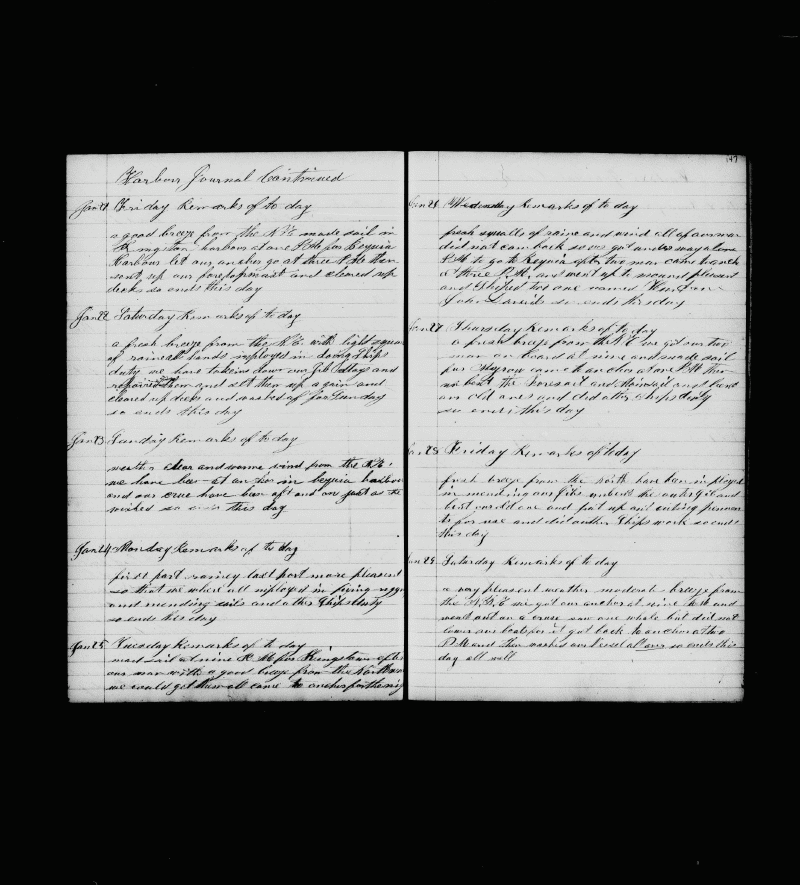 Harbour Journal Continued
Jan 21 Friday Remarks of to day
a good breeze from the N.E. made sail in
Kingston harbour at one P.M. for Bequia
Harbour let our anchor go at three P.M. then
sent up our foretopmast and cleared up
decks so ends this day
Jan 22 Saturday Remarks of to day
a fresh breeze from the N.E. with light squa
of raine all hands imployed in doing Ships
duty we have taken down our Jib Stays and
repaired them and sett them up again and
cleared up decks and washed of for Sunday
so ends this day
Jan 23 Sunday Remarks of to day
weather clear and warme wind from the N.E.
we have been at anchor in bequia harbou
and our crue have been aft and on just as the
wished so ends this day
Jan 24 Monday Remarks of to day
first part rainey last part more pleasent
so that we where all imployed in fixing
and mending sails and other Ships duty
so ends his day
Jan 25 Tuesday Remarks of to day
mad sail at nine A.M. for Kingstown after
our man with a good breeze from the Northward
we would get them all came to anchor for the nig
147
Jan 26 Wednesday Remarks of to day
fresh squalls of raine and wind all of our men
did not com back so we got under way at one
P.M. to go to Bequia after two man came back
at three P.M. and went up to mound pleasent
and Shiped two one named
John so ends this day
Jan 27 Thursday Remarks of to day
a fresh breeze from the N.E. we got our two
man on board at nine and made sail
for came to anchor at one P.M. then
un bent the Foresail and Mainsail and bent
an old ones and did other ships duty
so ends this day
Jan 28 Friday Remarks of to day
fresh breeze from the north have been imployed
in mending our Jibs unbent the outer Jib and
bent an old one and put up
for use and did outher Ships work so ends
this day
Jan 29 Saturday Remarks of to day
a vary pleasent weather moderate breeze from
the N.N.E. we got our anchor at nine A.M. and
went out on a cruse saw one whale but did not
lower our boats for it got back to anchor at two
P.M. and then washed our vessel all over so ends this
day all well